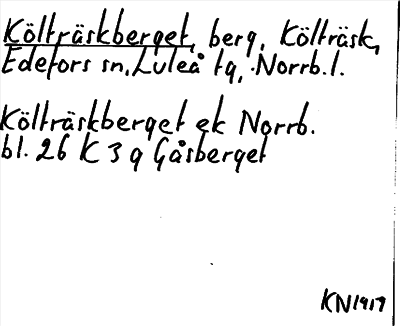 Költräskberget, berg, Költräsk,
Edefors sn, Luleå tg, Norrb. l.
Költräskberget ek Norrb.
bl. 26 K 3 g Gåsberget
KN 1919